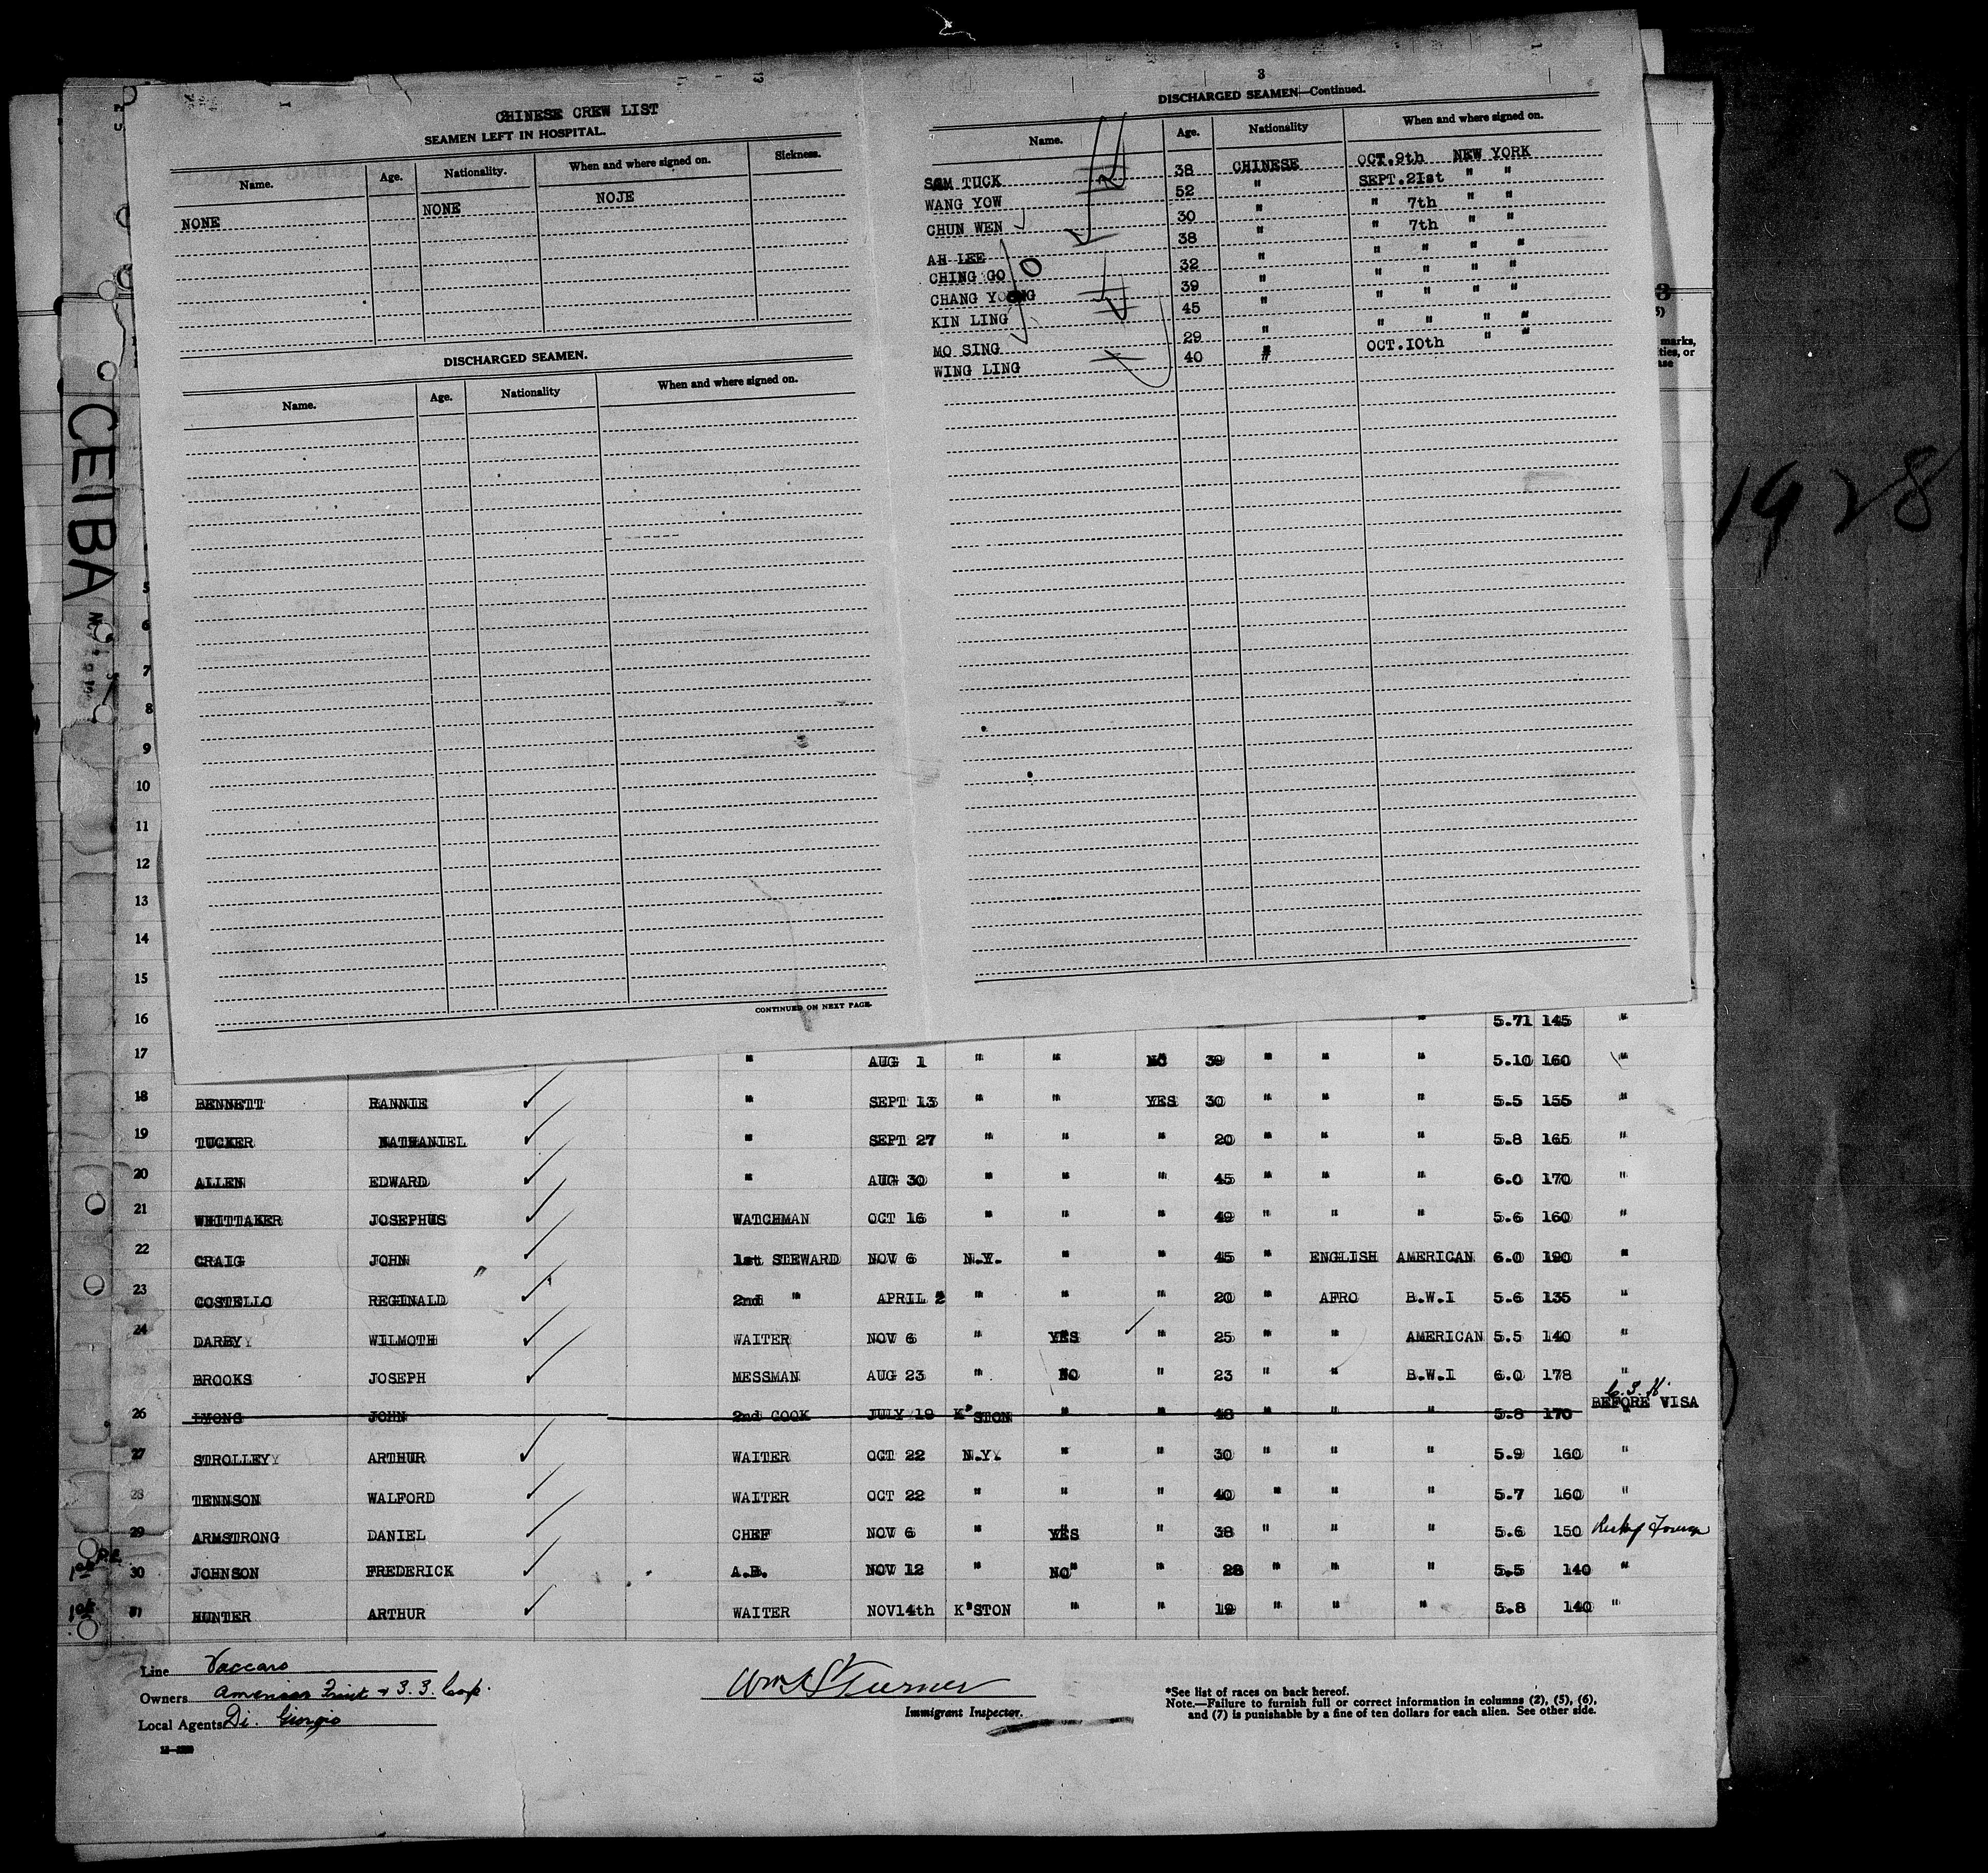 CHINESE CREW LIST
SEAMEN LEFT IN HOSPITAL.
Name. Age. Nationality. When and where signed on. Sickness.
NONE NONE NOJE
DISCHARGED SEAMEN.
Name. Age. Nationality When and where signed on.
CONTINUED ON NEXT PAGE.
3
DISCHARGED SEAMEN—Continued.
Name. Age. Nationality When and where signed on.
SAM TUCK 38 CHINESE OCT.9th NEW YORK
WANG YOW 52 " SEPT.2Ist " "
CHUN WEN 30 " " 7th " "
AH LEE 38 " " 7th " "
CHING GO 32 " " " " "
CHANG YOUNG 39 " " " " "
KIN LING 45 " " " " "
MO SING 29 " " " " "
WING LING 40 " OCT.IOth " "
marks,
ties, or
ase
1928
CEIBA
5
6
7
8
9
10
11
12
13
14
15
16 " 5.71 145 "
17 " AUG 1 " " NO 39 " " " 5.10 160 "
18 BENNETT RANNIE " SEPT 13 " " YES 30 " " " 5.5 155 "
19 TUCKER NATHANIEL " SEPT 27 " " " 20 " " " 5.8 165 "
20 ALLEN EDWARD " AUG 30 " " " 45 " " " 6.0 170 "
21 WHITTAKER JOSEPHUS WATCHMAN OCT 16 " " " 49 " " " 5.6 160 "
22 CRAIG JOHN 1st STEWARD NOV 6 N.Y. " " 45 " ENGLISH AMERICAN 6.0 190 "
23 COSTELLO REGINALD 2nd " APRIL 2 " " " 20 " AFRO B.W.I 5.6 135 "
24 DARBY WILMOTH WAITER NOV 6 " YES " 25 " " AMERICAN 5.5 140 "
25 BROOKS JOSEPH MESSMAN AUG 23 " NO " 23 " " B.W.I 6.0 178 "
26 LYONS JOHN 2nd COOK JULY 19 K'STON " " 48 " " " 5.8 170 BEFORE VISA
27 STROLLEY ARTHUR WAITER OCT 22 N.Y. " " 30 " " " 5.9 160 "
28 TENNSON WALFORD WAITER OCT 22 " " " 40 " " " 5.7 160 "
29 ARMSTRONG DANIEL CHEF NOV 6 " YES " 38 " " " 5.6 150
30 JOHNSON FREDERICK A.B. NOV 12 " NO" " 28 " " " 5.5 140 "
31 HUNTER ARTHUR WAITER NOV14th K'STON " " 19 " " " 5.8 140 "
Line Vaccaro
Owners American Fruit & S.S. Corp.
Local Agents Di. Giorgio
Wm S Turner
Immigrant Inspector.
*See list of races on back hereof.
Note.—Failure to furnish full or correct information in columns (2), (5), (6),
and (7) is punishable by a fine of ten dollars for each alien. See other side.